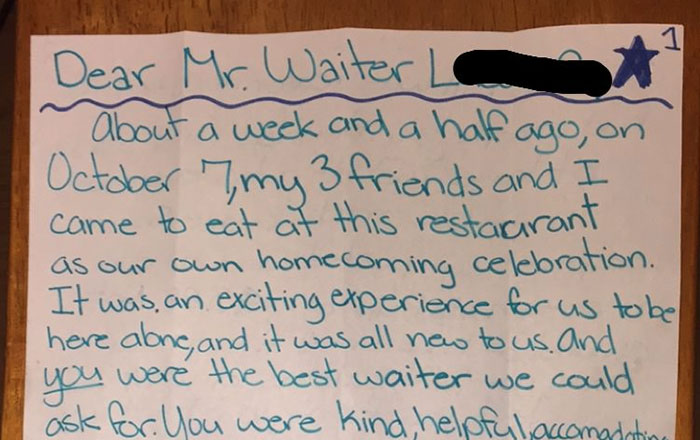 Dear Mr. Waiter L
1
About a week and a half ago, on
October 7, my 3 friends and I
came to eat at this restaurant
as our own homecoming celebration.
It was an exciting experience for us to be
here alone, and it was all new to us. And
you were the best waiter we could
ask for. You were kind, helpful,